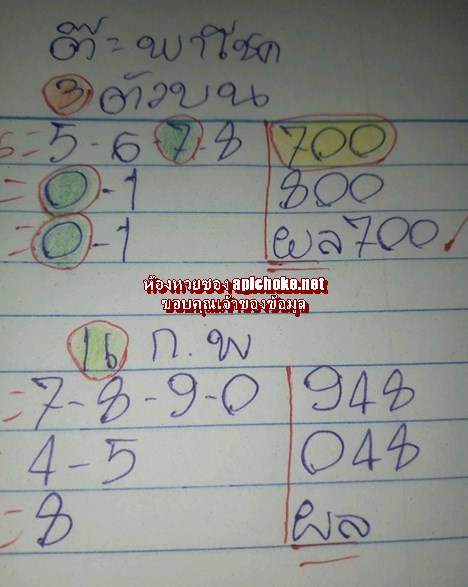 ต๊ะ พาโชค
3 ตัวบน
= 5-6-7-8 700
= 0-1 800
= 0-1 ผล700
ห้องหวยซอง apichoke.net
ขอบคุณเจ้าของข้อมูล
16 ก.พ
= 7-8-9-0 948
4-5 048
= 8 ผล